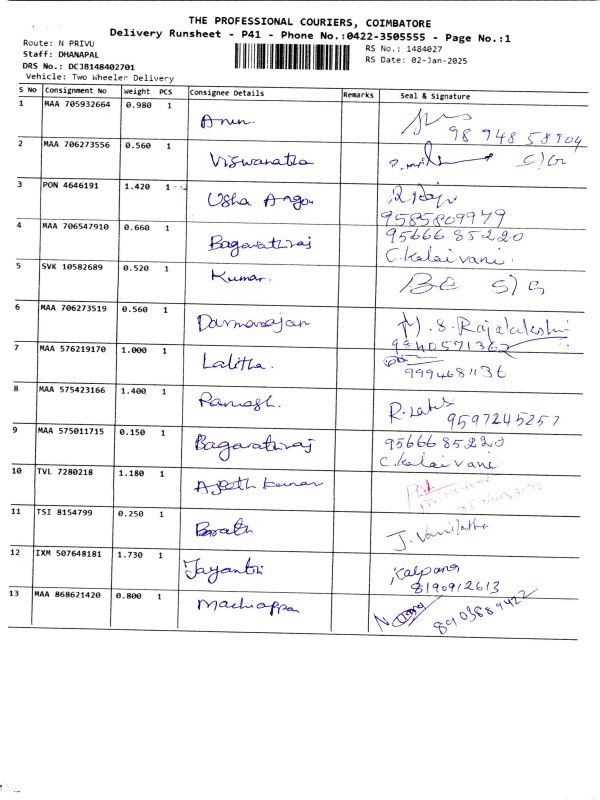 THE PROFESSIONAL COURIERS, COIMBATORE
Delivery Runsheet - P41 - Phone No.:0422-3505555 - Page No.:1
Route: N PRIVU
RS No.: 1484027
Staff: DHANAPAL
RS Date: 02-Jan-2025
DRS No.: DCJB148402701
Vehicle: Two Wheeler Delivery
S No Consignment No Weight PCS Consignee Details Remarks Seal & Signature
1 MAA 705932664 0.980 1 Arun.
98948 58904
2 MAA 706273556 0.560 1 Viswanatha S/G
3 PON 4646191 1.420 1 Usha
9585809979
4 MAA 706547910 0.660 1 Bagarathiraj 95666 85220
C. Kalaivani.
5 SVK 10582689 0.520 1 Kumar. S/G
6 MAA 706273519 0.560 1 Darmarajan M. S. Rajalakshmi
9940571362
7 MAA 576219170 1.000 1 Lalitha.
9994681136
8 MAA 575423166 1.400 1 Ramesh. R. Latus
9597245257
9 MAA 575011715 0.150 1 Bagarathiraj 95666 85220
C. Kalaivani
10 TVL 7280218 1.180 1 Ajeeth Kumar
11 TSI 8154799 0.250 1 Barath J. Vanilatha
12 IXM 507648181 1.730 1 Jayanthi Kalpana
8190912613
13 MAA 868621420 0.800 1 Machiappan 8903889422